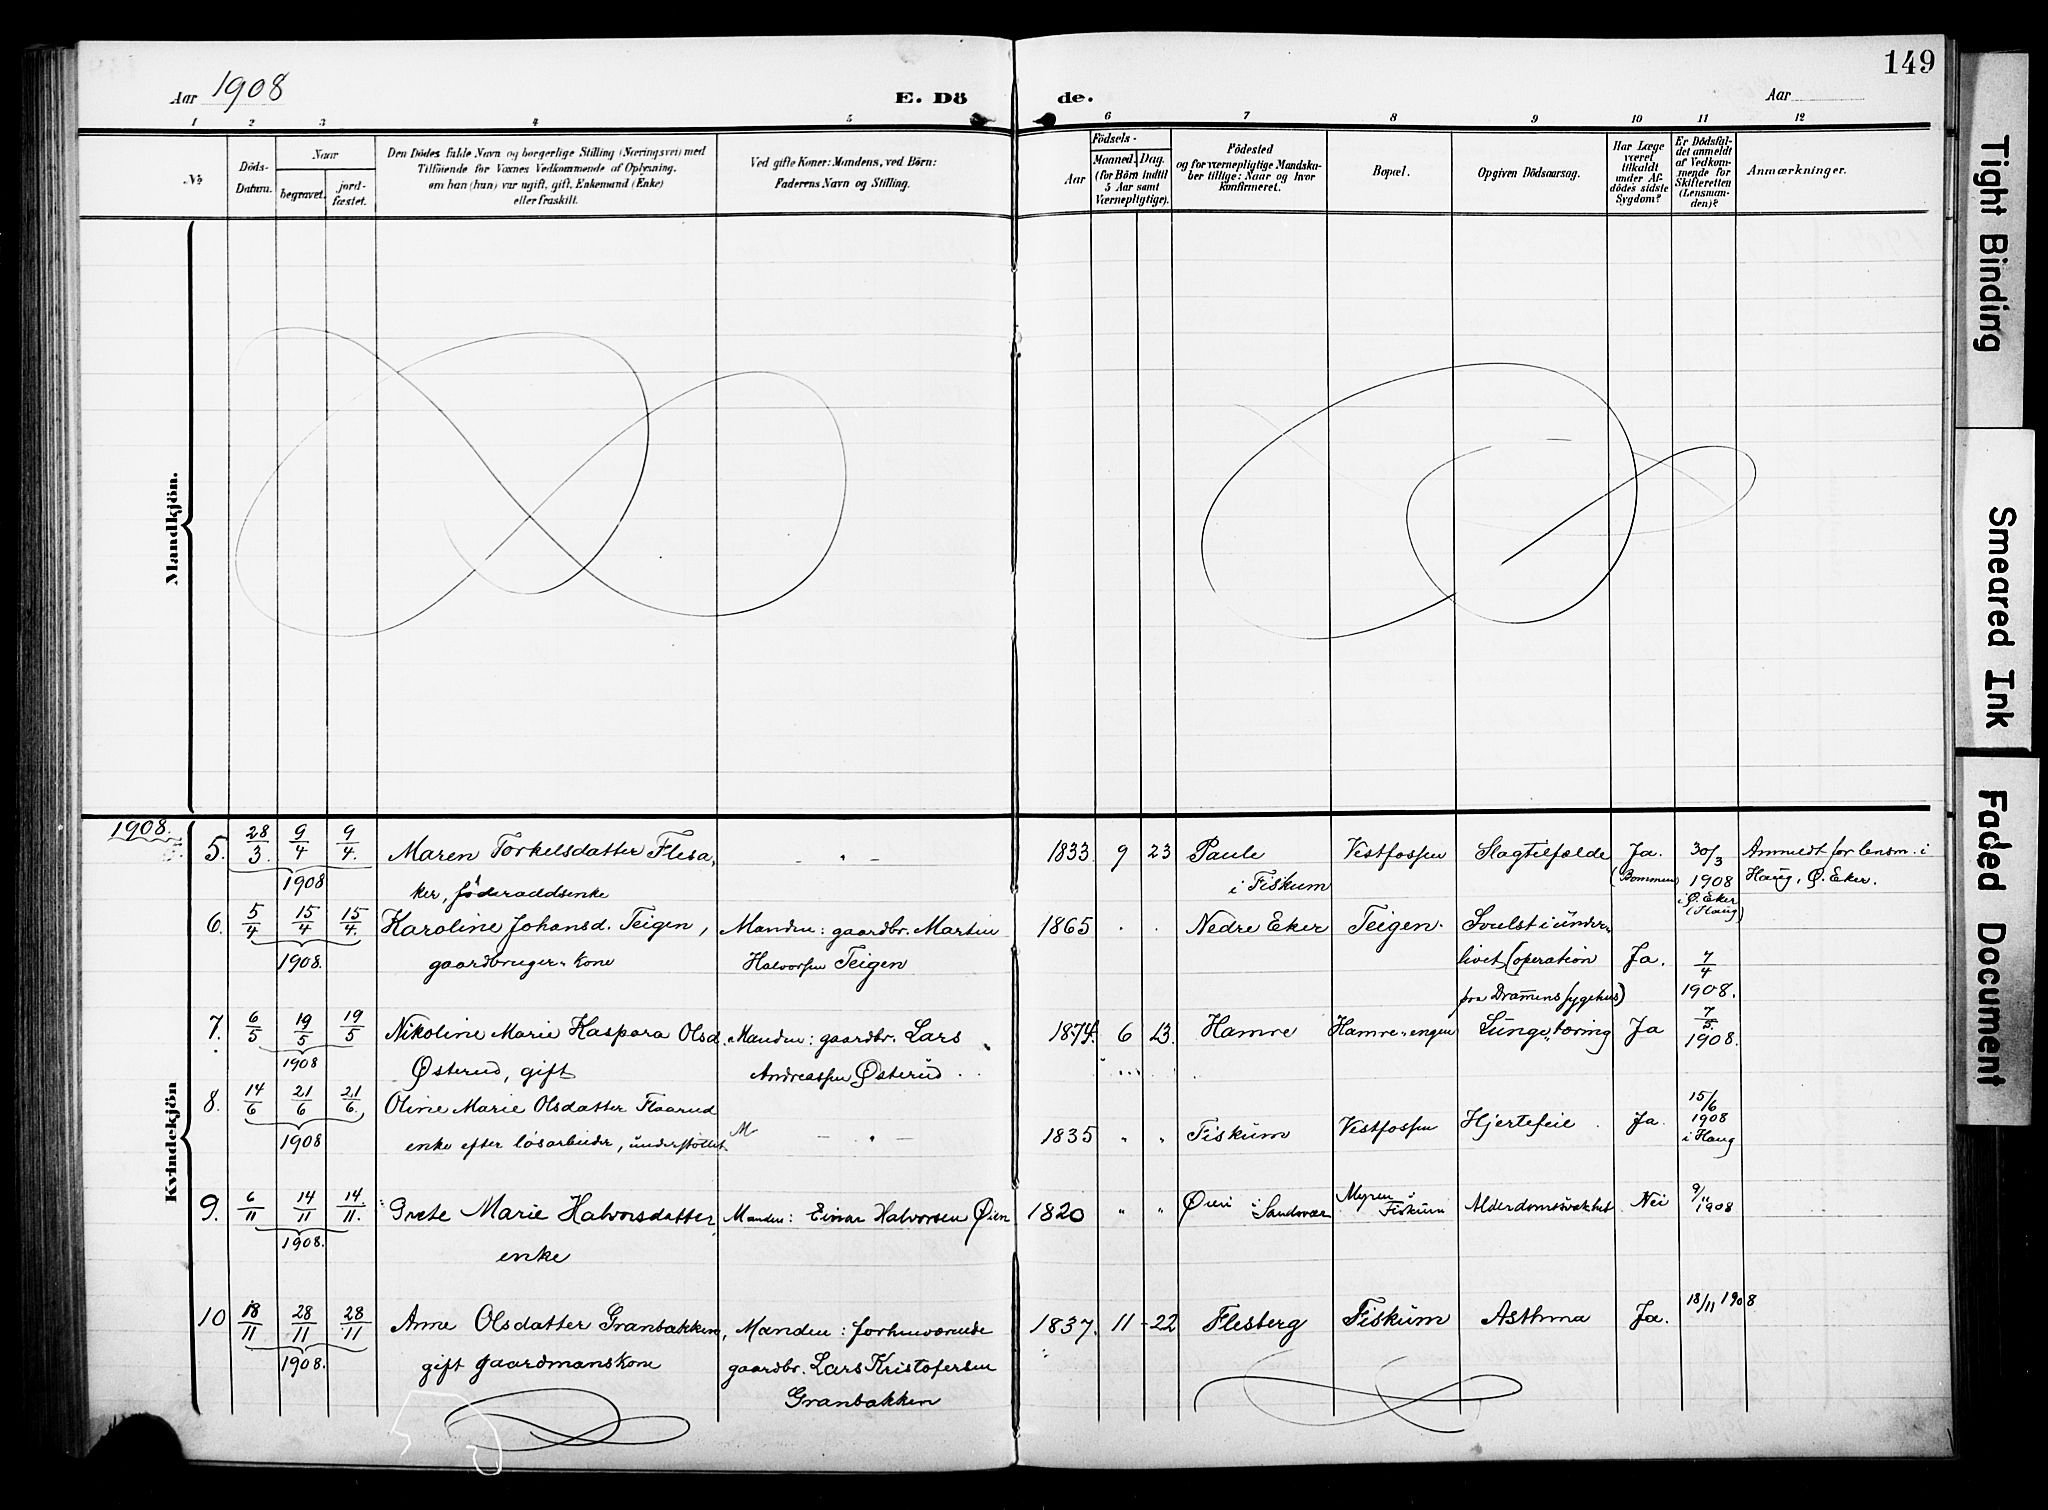 149
Aar 1908
E. Dö de.
Aar
1 2 3 4 5 6 7 8 9 10 11 12
No
Döds-
Datum.
Naar
begravet.
jord-
fæstet.
Den Dödes fulde Navn og borgerlige Stilling (Næringsvei) med
Tilföiende for Voxnes Vedkommende af Oplysning,
om han (hun) var ugift, gift, Enkemand (Enke)
eller fraskilt.
Ved gifte Koner: Mandens, ved Börn:
Faderens Navn og Stilling.
Födsels-
Aar
Maaned. Dag.
(for Börn indtil
5 Aar samt
Værnepligtige).
Födested
og for værnepligtige Mandska-
ber tillige: Naar og hvor
konfirmeret.
Bopæl.
Opgiven Dödsaarsag.
Har Læge
været
tilkaldt
under Af-
dödes sidste
Sygdom?
Er Dödsfal-
det anmeldt
af Vedkom-
mende for
Skifteretten
(Lensman-
den)?
Anmærkninger.
Mandkjön.
Kvindekjön
1908.
5. 28/3. 9/4 9/4. Maren Torkelsdatter Flesa, - " - 1833. 9 23 Paule Vestfossen Slagtilfælde Ja. 30/3 Anmeldt for lensm. i
1908 ker, föderaadsenke i Fiskum (Bommen) 1908 Haug, Ø. Eker.
i Ø. Eker
(Haug)
6. 5/4 15/4 15/4. Karoline Johansd. Teigen, Manden: gaardbr. Martin 1865 . . Nedre Eker Teigen. Svulst i under-
1908. gaardbruger-kone Halvorsen Teigen livet (operation Ja. 7/4
fra Dramens sygehus) 1908.
7. 6/5 19/5 19/5 Nikoline Marie Kaspara Olsd. Manden: gaardbr. Lars 1874. 6 23. Hamre Hamre-engen Lunge-tæring Ja 7/5.
1908 Østerud, gift Andreassen Østerud 1908.
8. 14/6 21/6 21/6. Oline Marie Olsdatter Flaarud
1908 enke efter løsarbeider, understøttet M - " - 1835 " " Fiskum Vestfossen Hjertefeil. Ja. 15/6
1908
i Haug
9. 6/11 14/11 14/11. Grete Marie Halvorsdatter, Manden: Einar Halvorsen Øien 1820 " " Øien i Sandsvær Myren i Fiskum Alderdomssvakhet Nei 9/11
1908. enke 1908
10 18/11 28/11 28/11 Anne Olsdatter Granbakken, Manden: forhenværende 1837. 11 -22 Flesberg Fiskum Asthma Ja. 18/11 1908
1908. gift gaardmanskone gaardbr. Lars Kristofersen
Granbakken
Tight Binding
Smeared Ink
Faded Document